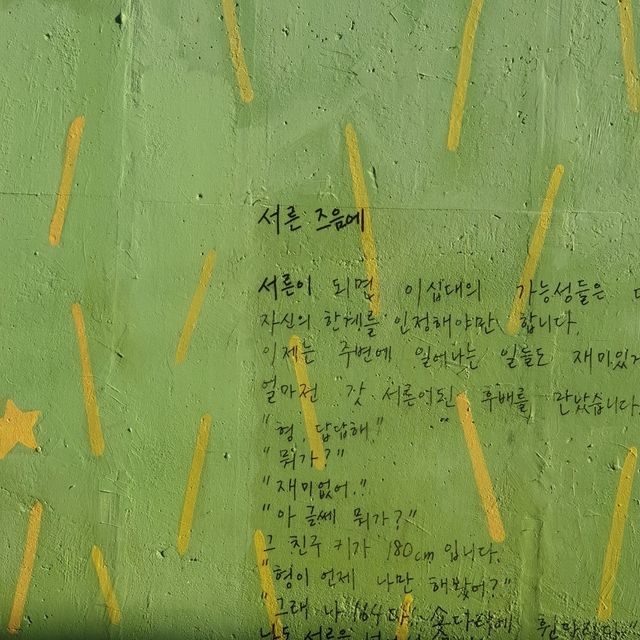 서른 즈음에
서른이 되면 이십대의 가능성들은
자신의 한계를 인정해야만 합니다.
이제는 주변에 일어나는 일들도 재미있거
얼마전 갓 서른이된 후배를 만났습니다
"형, 답답해."
"뭐가?"
"재미없어."
"아 글쎄 뭐가?"
그 친구 키가 180cm 입니다.
"형이 언제 나만 해봤어?"
"그래 나 164다
나도 서른은